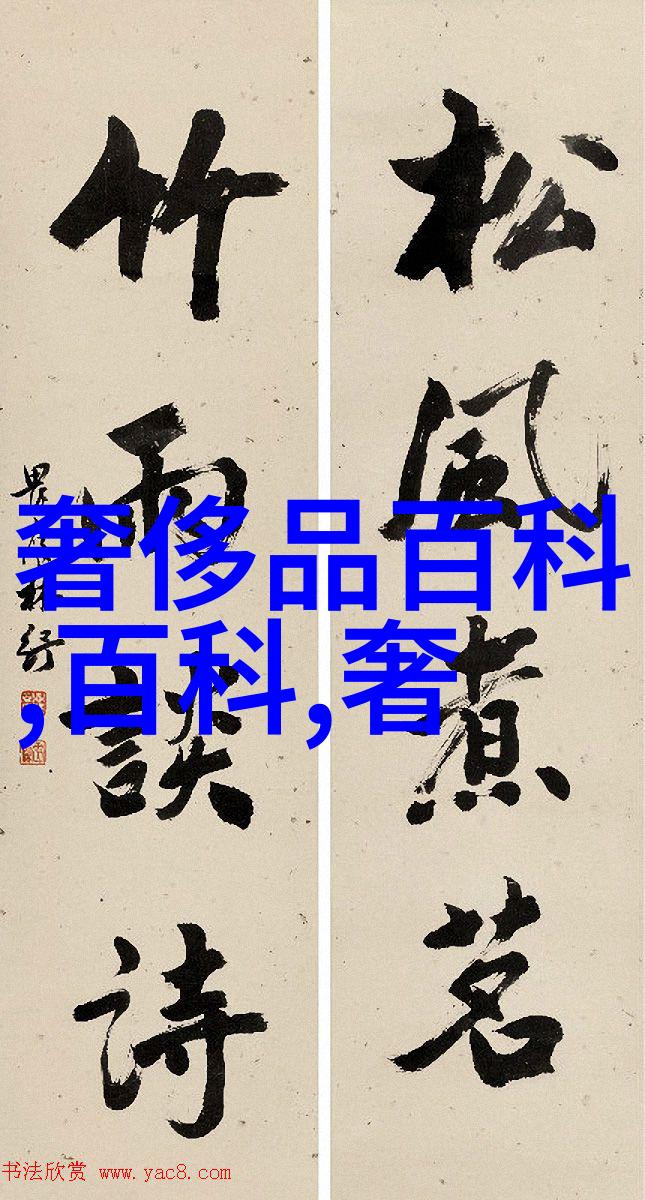 松風煮茗
竹雨談詩
奢侈品百科
,百科,奢
书法欣赏 www.yac8.com